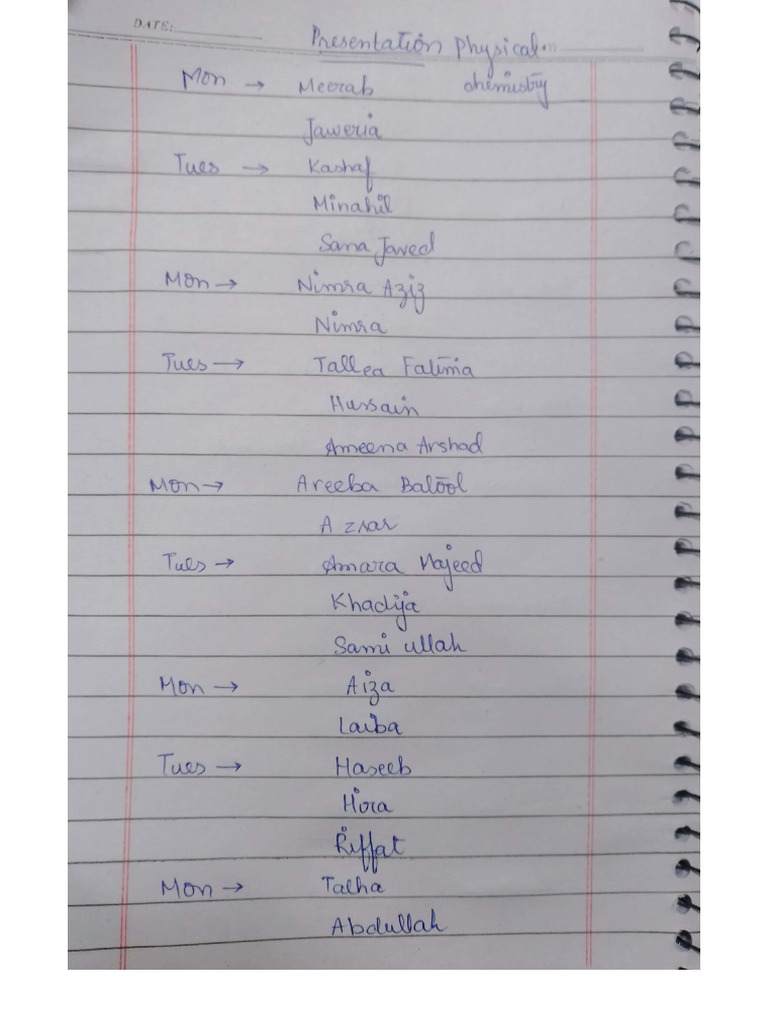 DATE:
Presentation Physical
Mon → Meerab chemistry
Jaweria
Tues → Kashaf
Minahil
Sana Javed
Mon → Nimra Aziz
Nimra
Tues → Tallea Fatima
Hussain
Ameena Arshad
Mon → Areeba Batool
Azhar
Tues → Amara Majeed
Khadija
Sami ullah
Mon → Aiza
Laiba
Tues → Haseeb
Hira
Riffat
Mon → Talha
Abdullah